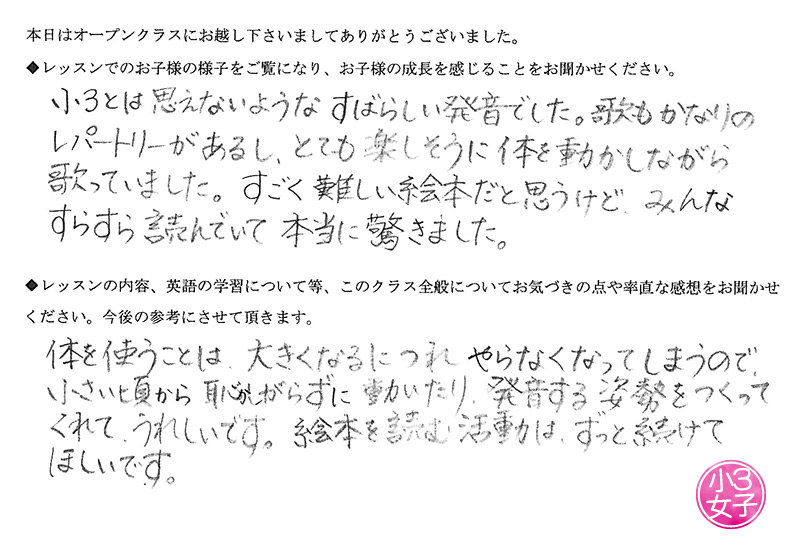 本日はオープンクラスにお越し下さいましてありがとうございました。
◆レッスンでのお子様の様子をご覧になり、お子様の成長を感じることをお聞かせください。
小3とは思えないような すばらしい発音でした。歌もかなりの
レパートリーがあるし、とても楽しそうに体を動かしながら
歌っていました。すごく難しい絵本だと思うけど、みんな
すらすら読んでいて本当に驚きました。
◆レッスンの内容、英語の学習について等、このクラス全般についてお気づきの点や率直な感想をお聞かせ
ください。今後の参考にさせて頂きます。
体を使うことは、大きくなるにつれ やらなくなってしまうので、
小さい頃から恥しがらずに動いたり、発音する姿勢をつくって
くれて、うれしいです。絵本を読む活動は、ずっと続けて
ほしいです。
小3
女子